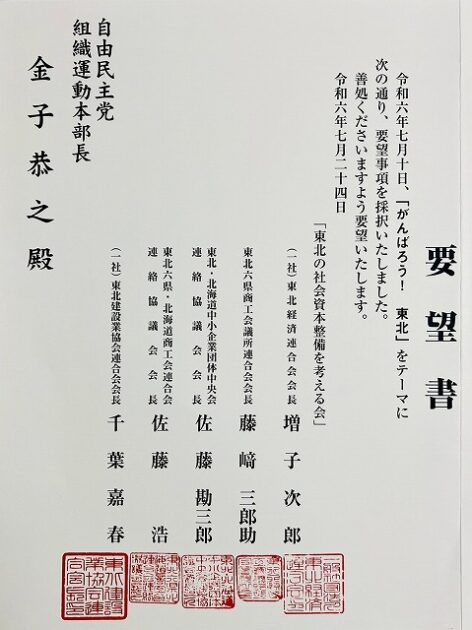 要望書
令和六年七月十日、「がんばろう！ 東北」をテーマに
次の通り、要望事項を採択いたしました。
善処くださいますよう要望いたします。
令和六年七月二十四日
「東北の社会資本整備を考える会」
（一社）東北経済連合会会長 増子次郎
東北六県商工会議所連合会会長 藤﨑三郎助
東北・北海道中小企業団体中央会
連絡協議会会長 佐藤勘三郎
東北六県・北海道商工会連合会
連絡協議会会長 佐藤浩
（一社）東北建設業協会連合会会長 千葉嘉春
自由民主党
組織運動本部長
金子恭之殿